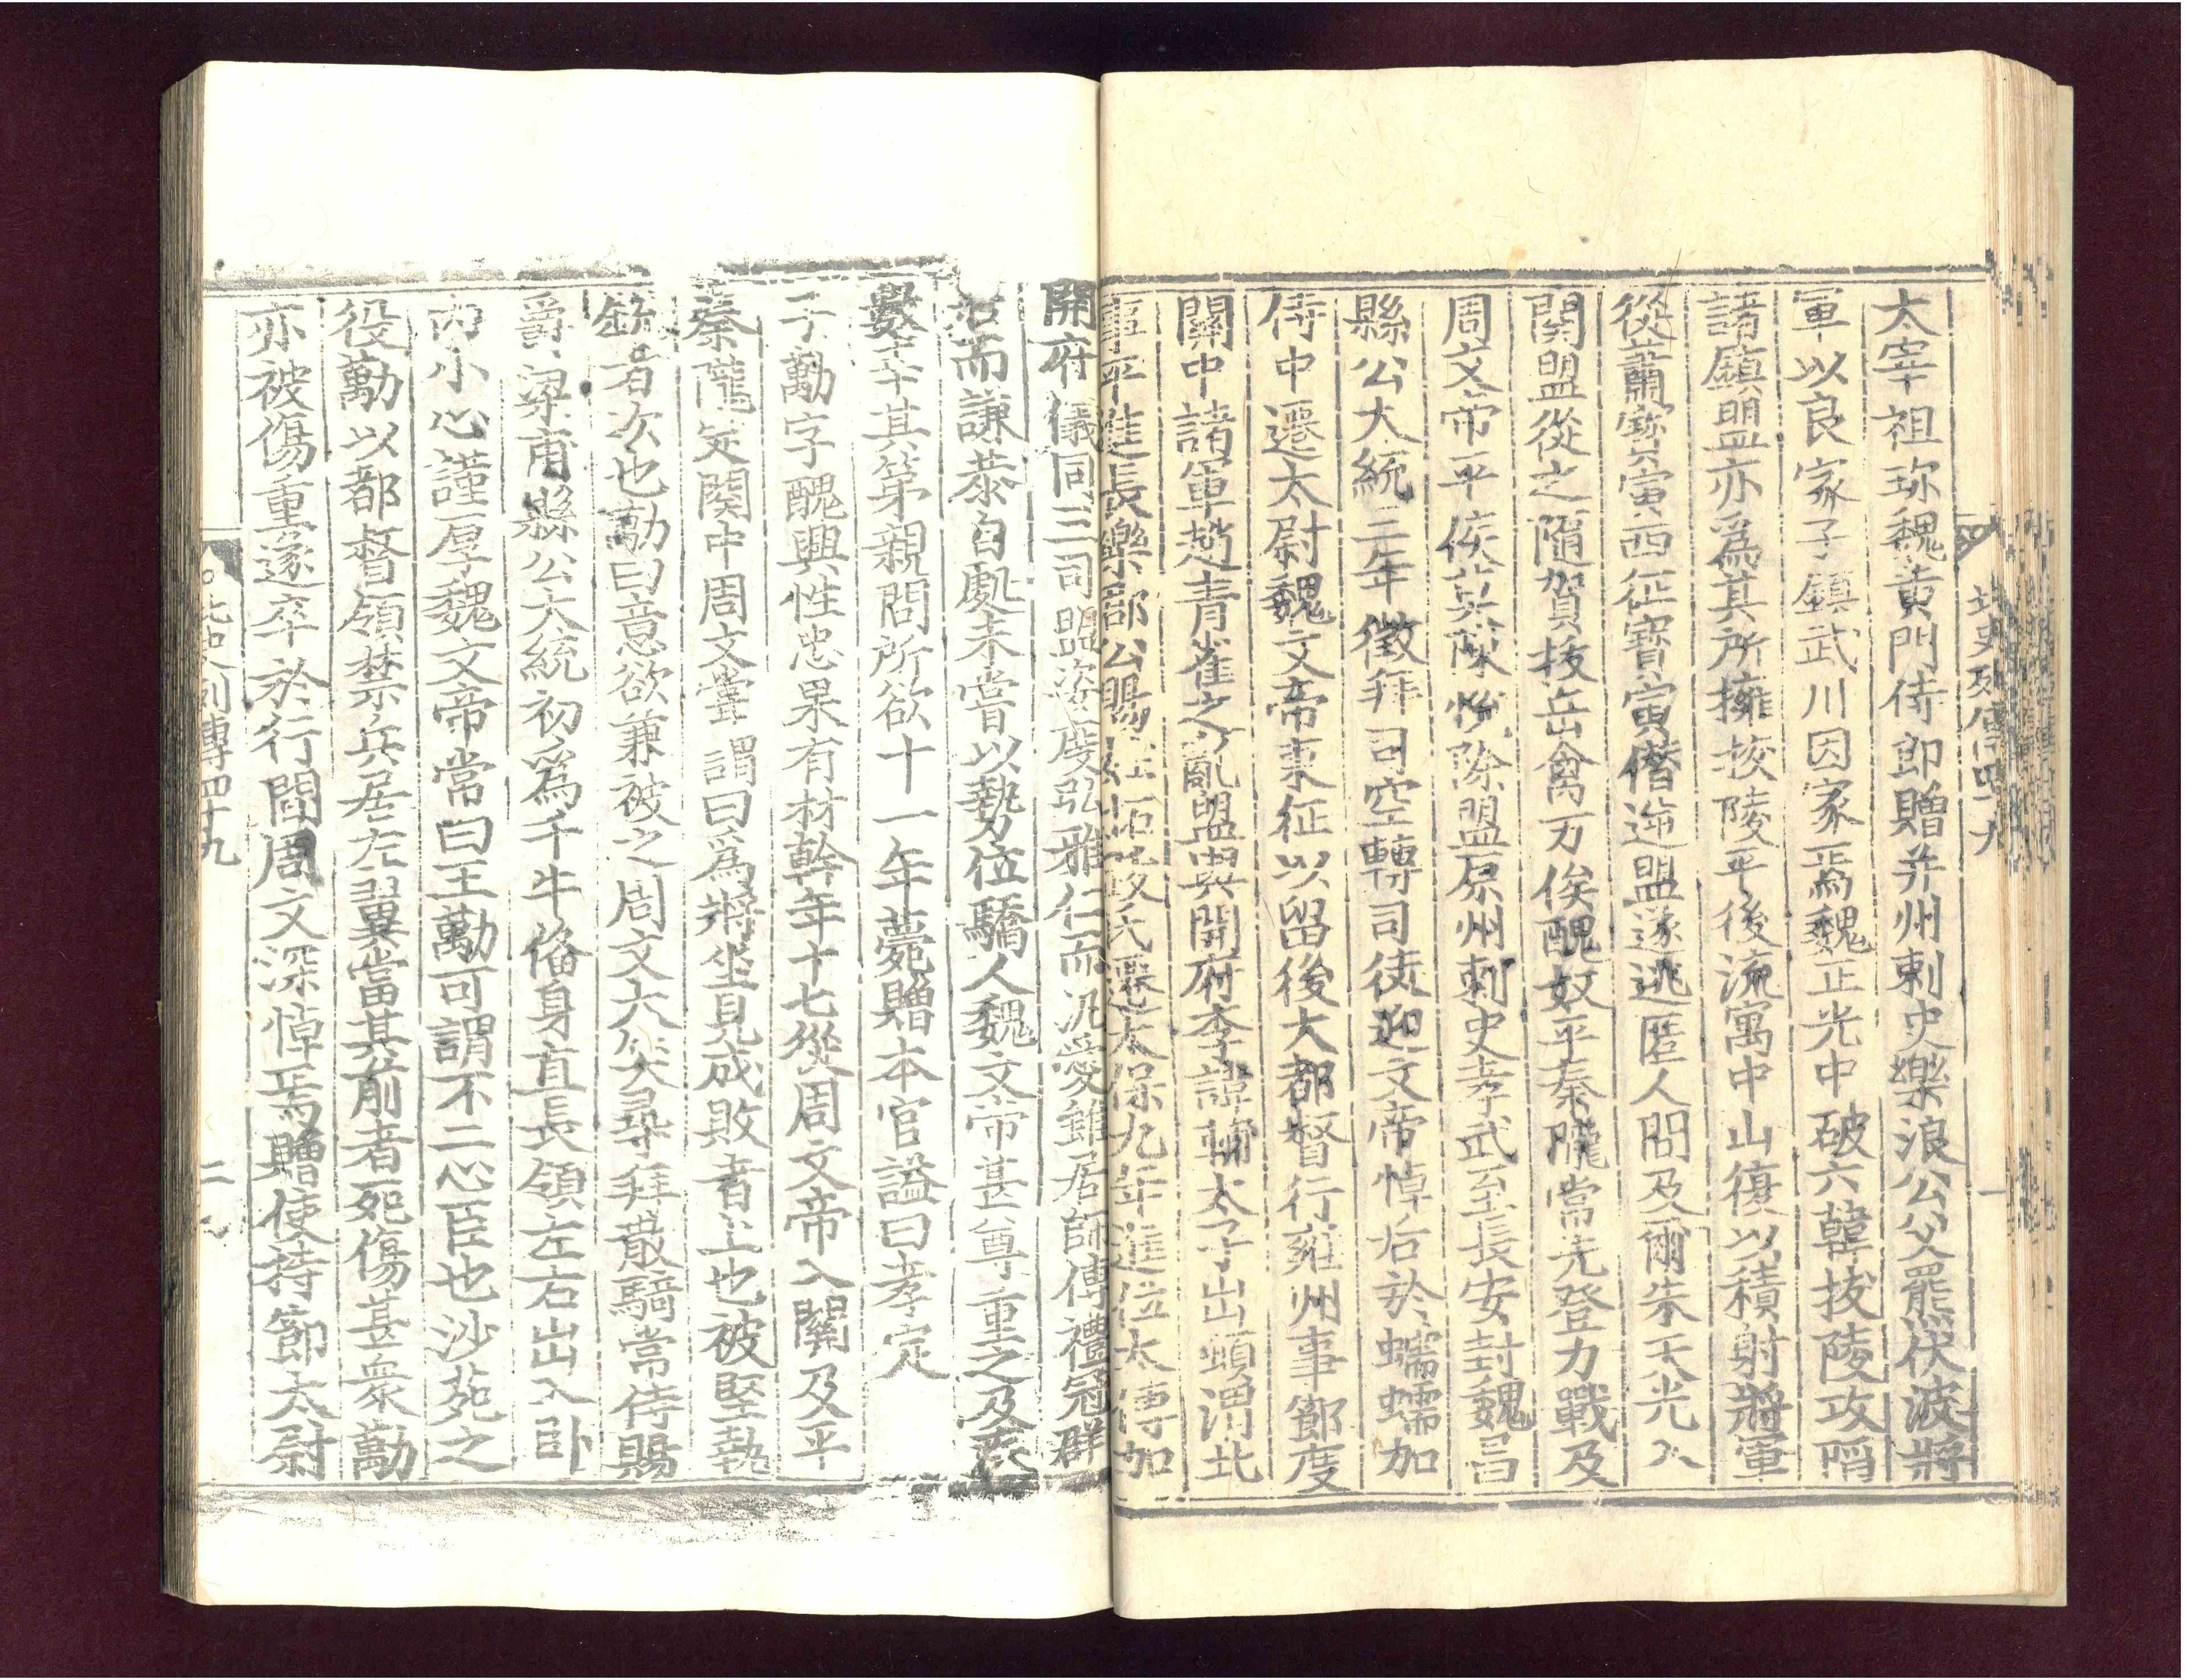 北史列傳四十九 一
太宰祖珎魏黄門侍郎贈并州刺史樂浪公父羆伏波將
軍以良家子鎮武川因家焉魏正光中破六韓拔陵攻䧟
諸鎮盟亦爲其所擁拔陵平後流寓中山復以積射將軍
從蕭寶寅西征寶寅僭逆盟遂逃匿人間及爾朱天光入
関盟從之隨賀拔岳禽万俟醜奴平秦隴常先登力戰及
周文帝平侯莫陳悦除盟原州刺史孝武至長安封魏昌
縣公大統三年徵拜司空轉司徒迎文帝悼后於蠕蠕加
侍中遷太尉魏文帝東征以留後大都督行雍州事節度
關中諸軍趙青雀之亂盟與開府李諱輔太子出頓渭北
事平進長樂郡公賜姓拓拔氏遷太保九年進位太傅加
開府儀同三司盟姿度弘雅仁而汎愛雖居師傅禮冠群
后而謙恭自處未嘗以勢位驕人魏文帝甚尊重之及疾
數幸其第親問所欲十一年薨贈本官謚曰孝定
子勱字醜興性忠果有材幹年十七從周文帝入關及平
秦隴定関中周文嘗謂曰爲將坐見成敗者上也被堅執
銳者次也勱曰意欲兼被之周文大笑尋拜散騎常侍賜
爵梁甫縣公大統初爲千牛俻身直長領左右出入卧
内小心謹厚魏文帝常曰王勱可謂不二心臣也沙苑之
役勱以都督領禁兵居左翼當其前者死傷甚衆勱
亦被傷重遂卒於行間周文深悼焉贈使持節太尉
北史列傳四十九 二